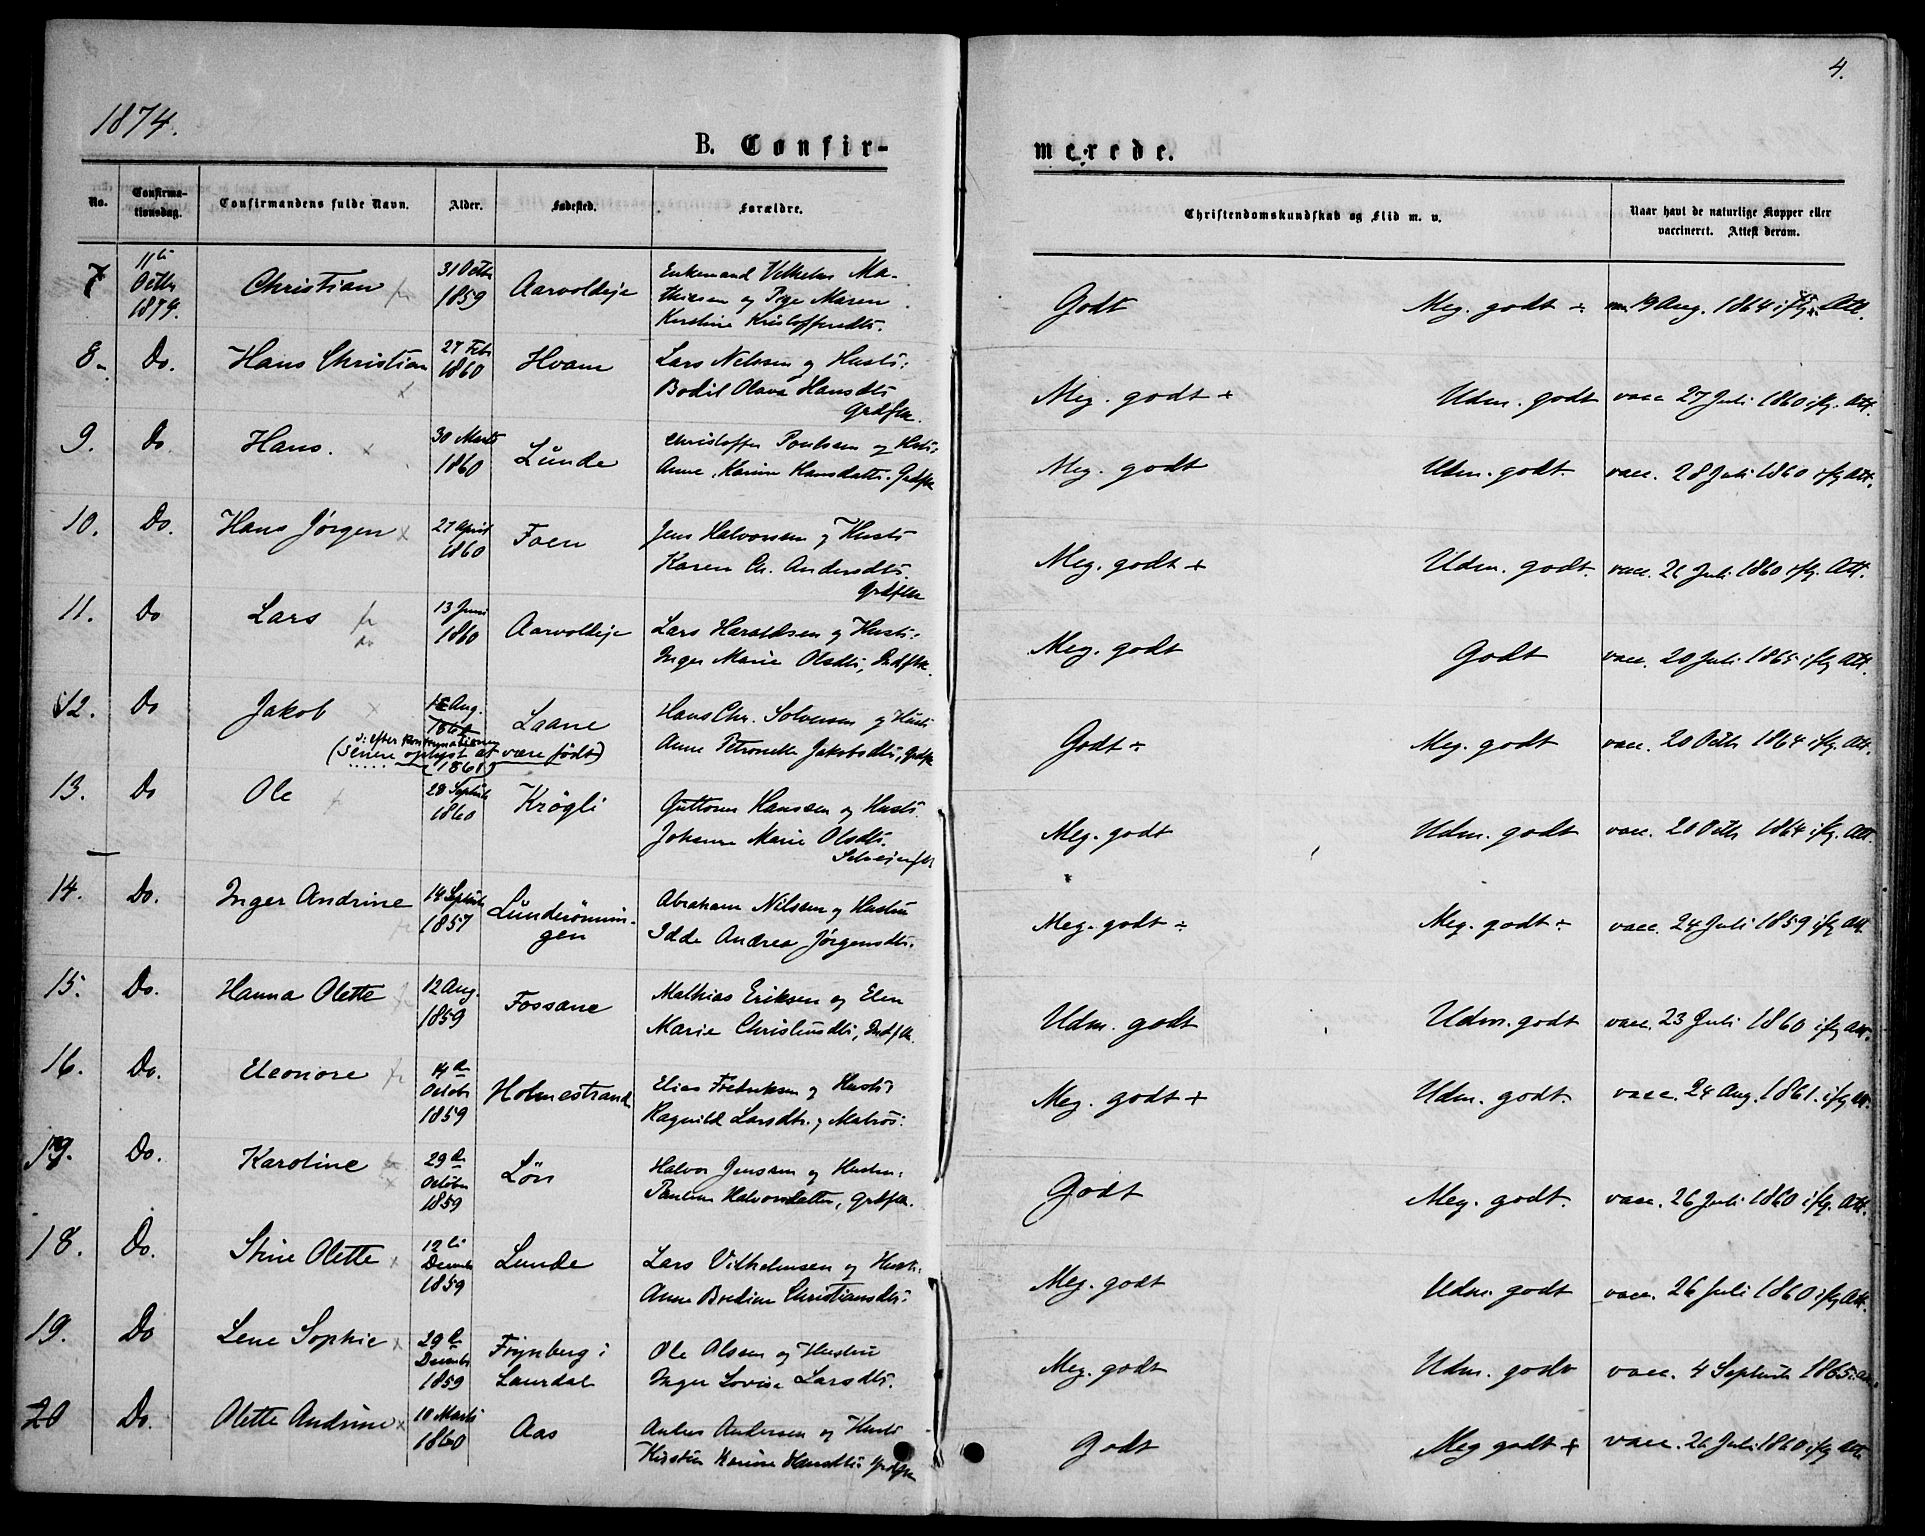 1874.
4.
B. Confir-
merede.
No. Confirma-tionsdag. Confirmandens fulde Navn. Alder. Fødested. Forældre. Christendomskundskab og Flid m. v. Naar havt de naturlige Kopper eller vaccineret. Attest derom.
7 11te Octbr 1874. Christian 31 Octbr 1859 Aarvoldeje Enkemand Vilhelm Ma-
thiesen og Pige Maren
Kirstine Kristoffersdtr. Godt Meg. godt ÷ 19 Aug. 1864 ifg. Att.
8 Do. Hans Christian 27 Febr 1860 Hvam Lars Nielsen og Hustr:
Bodil Olava Hansdtr
Grdfkr. Meg. godt + Udm. godt vacc 27 Juli 1860 ifg. Att.
9. Do. Hans. 30 Marts 1860 Lunde Christoffer Poulsen og Hstr:
Anne Karine Hansdattr. Grdfkr Meg. godt Udm. godt. vacc. 28 Juli 1860 ifg Att.
10. Do. Hans Jørgen 27 April 1860 Foen Jens Halvorsen og Hustr
Karen Ch. Andersdtr.
Grdfkr Meg. godt + Udm. godt. vacc. 26 Juli 1860 ifg. Att.
11. Do Lars 13 Juni 1860 Aarvoldeje Lars Haraldsen og Hustr:
Inger Marie Olsdtr, Indfkr. Meg. godt Godt vacc. 20 Juli 1865 ifg Att.
12. Do Jakob Aug. Laane Hans Chr. Solvesen og Hustr
Anne Petronelle Jakobsdtr, Grdfkr Godt ÷ Meg. godt vacc. 20 Octbr 1864 ifg. Att.
(ɔ: efter Konfirmationen
senere oplyst at være født)
(1861)
13. Do Ole 28 Septbr 1860 Krøgli Guttorm Hanssen og Hustr.
Johanne Marie Olsdtr.
Selveierfkr Meg. godt Udm. godt vacc. 20 Octbr 1864 ifg. Att.
14. Do. Inger Andrine 14 Septbr 1857 Lunderønnin-
gen Abraham Nilssen og Hustru
Idde Andrea Jørgensdtr. Meg. godt ÷ Meg. godt ÷ vacc. 24 Juli 1859 ifg Att.
15. Do. Hanna Olette 12 Aug. 1859 Fossane Mathias Eriksen og Elen
Marie Christensdtr, Indfkr. Udm. godt Udm. godt vacc. 23 Juli 1860 ifg Att.
16. Do. Eleonore 14de October 1859 Holmestrand Elias Fredriksen og Hustr:
Ragnild Larsdtr. Matros. Meg. godt + Udm. godt. vacc. 24 Aug. 1861. ifg Att.
17. Do. Karoline 29de October 1859 Løn Halvor Jenssen og Hustru.
Pauline Halvorsdatter, Grdfkr. Godt Meg. godt. vacc. 26 Juli 1860 ifg. Att.
18. Do. Stine Olette 12te Decembr 1859 Lunde Lars Vilhelmsen og Hustr:
Anne Bredine Christiansdtr: Meg. godt Udm. godt vacc. 26 Juli 1860 ifg Att.
19. Do Lene Sophie 29de Decembr 1859 Frynberg i
Laurdal Ole Olssen og Hustru
Inger Lovise Larsdtr. Meg. godt Udm. godt vacc. 4 Septembr 1865
20 Do. Olette Andrine 10 Marts 1860 Aas Anders Andersen og Hustr
Kirstine Karine Hansdtr: Grdfkr Godt Meg godt + vacc. 26 Juli 1860 ifg Att.